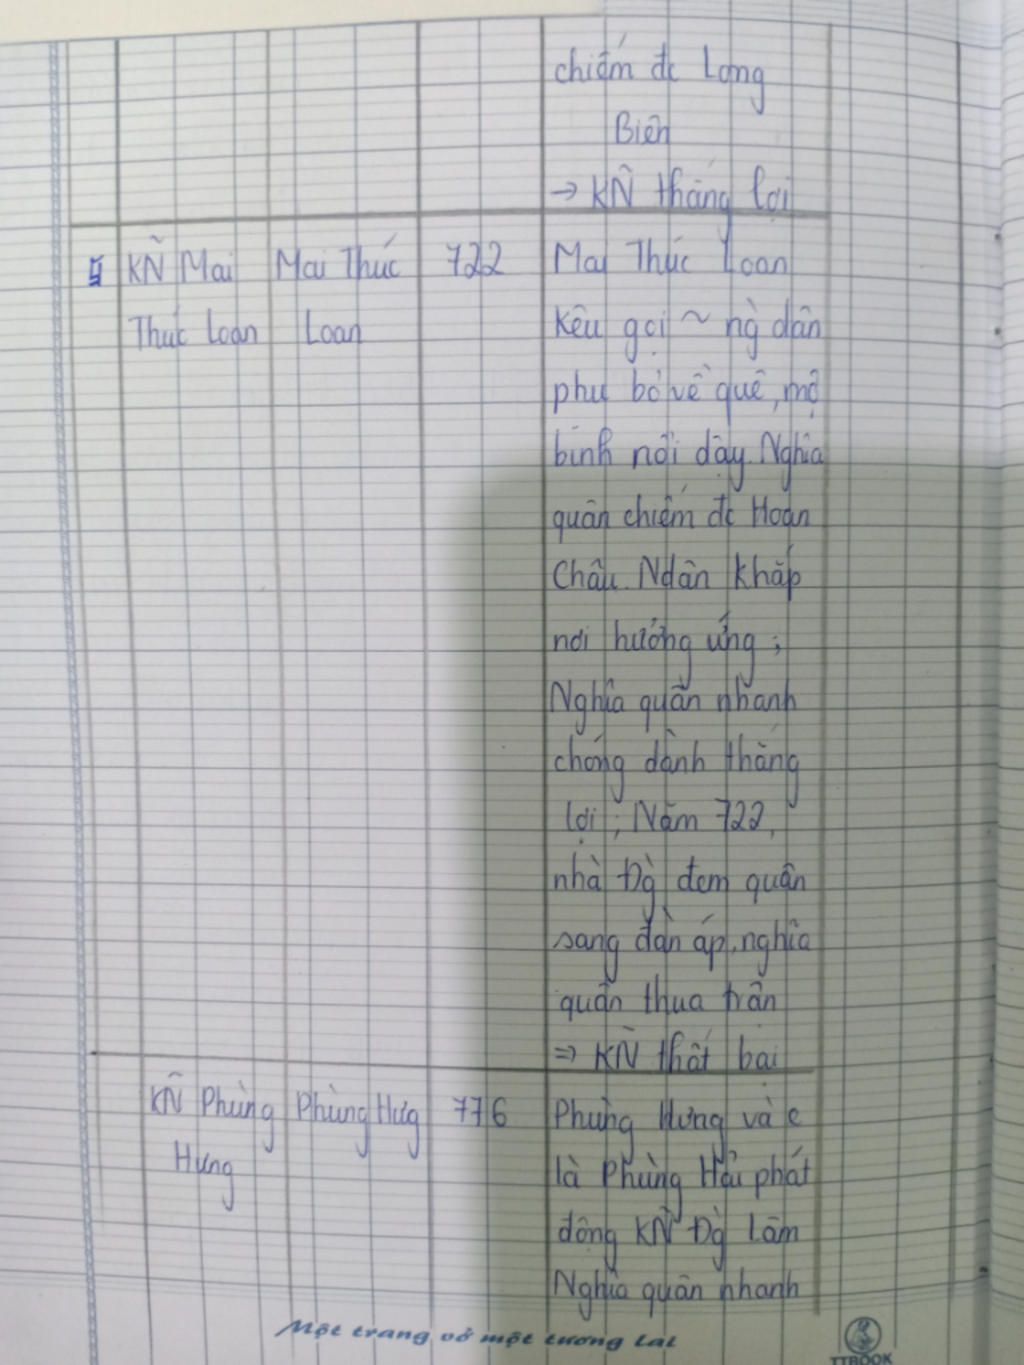 chiếm đc Long
Biên
→ KN thắng lợi
KN Mai
Thúc Loan
Mai Thúc
Loan
722
Mai Thúc Loan
kêu gọi ~ ng` dân
phu bỏ về quê, mộ
binh nổi dậy. Nghĩa
quân chiếm đc Hoan
Châu. Ndân khắp
nơi hưởng ứng ;
Nghĩa quân nhanh
chóng dành thắng
lợi ; Năm 722,
nhà Đg` đem quân
sang đàn áp, nghĩa
quân thua trận
=> KN thất bại
KN Phùng
Hưng
Phùng Hưg
776
Phùng Hưng và e
là Phùng Hải phát
động KN Đg` Lâm
Nghĩa quân nhanh
Một trang vở một tương lai
TTBOOK